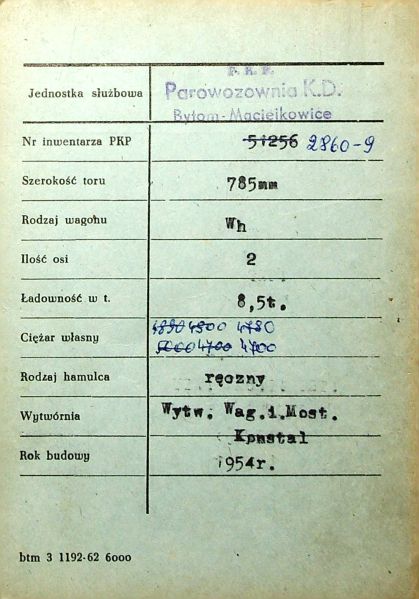 P. K. P.
Jednostka służbowa Parowozownia K.D.
Bytom-Maciejkowice
Nr inwentarza PKP 51256 2860-9
Szerokość toru 785mm
Rodzaj wagonu Wh
Ilość osi 2
Ładowność w t. 8,5t.
Ciężar własny 4890 4900 4780
5000 4700 4700
Rodzaj hamulca ręczny
Wytwórnia Wytw. Wag.i.Most.
Konstal
Rok budowy 1954r.
btm 3 1192-62 6000